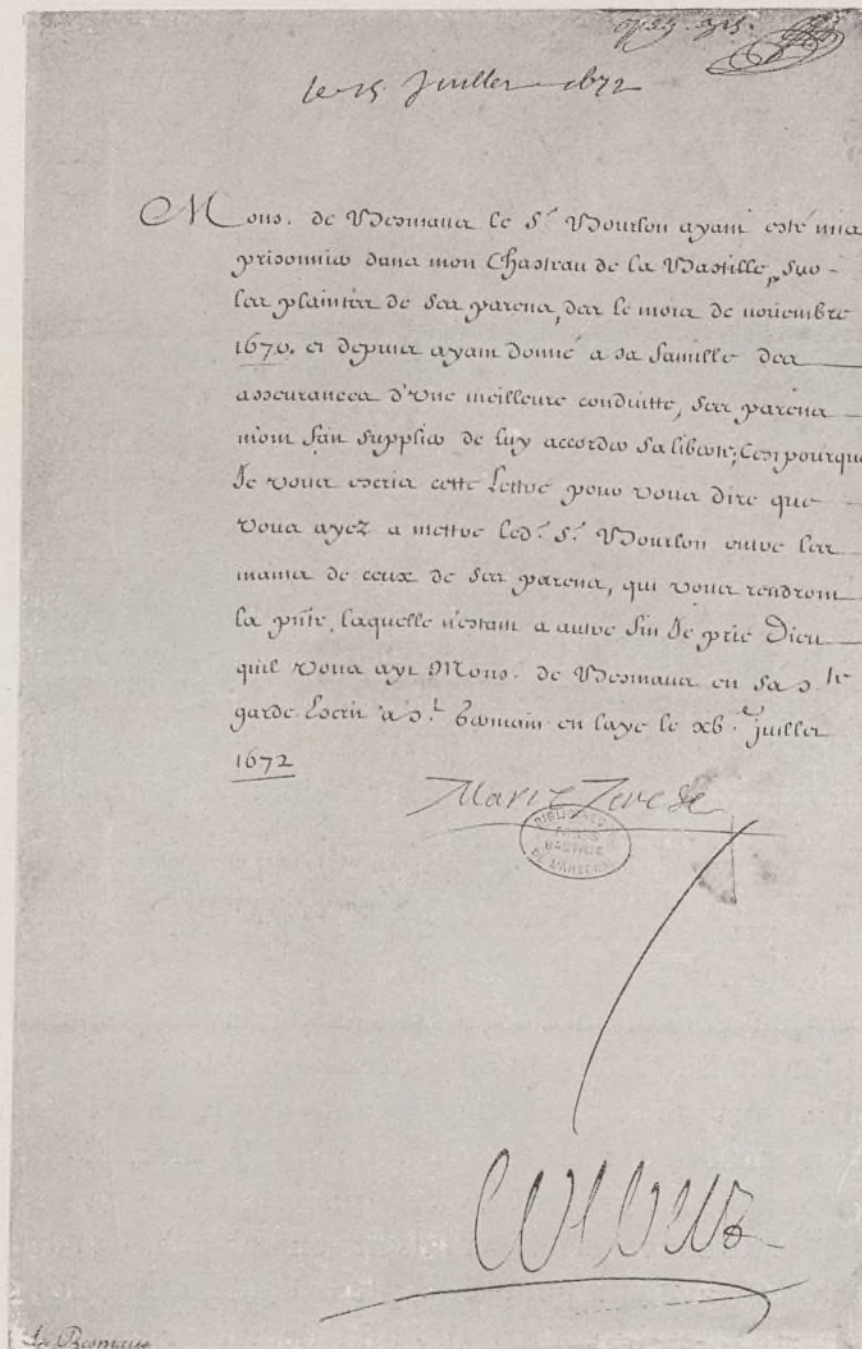 le 15 Juillet 1672
Mons. de Besmaus le S.r Bourlon ayant esté mis
prisonnier dans mon Chasteau de la Bastille, sur
les plaintes de ses parens, des le mois de novembre
1670. et depuis ayant donné a sa famille des
asseurances d'une meilleure conduitte, ses parens
m'ont fait supplier de luy accorder sa liberté; C'est pourquoy
Je vous escris cette Lettre pour vous dire que
vous ayez a mettre led.t S.r Bourlon entre les
mains de ceux de ses parens, qui vous rendront
la pñte, laquelle n'estant a autre fin Je prie Dieu
quil vous ayt Mons. de Besmaus en sa s.te
garde Escrit a S.t Germain en laye le xb.e juillet
1672
Marie Terese
BIBLIOTHEQUE
BASTILLE
DE L'ARSENAL
Colbert
Besmaus